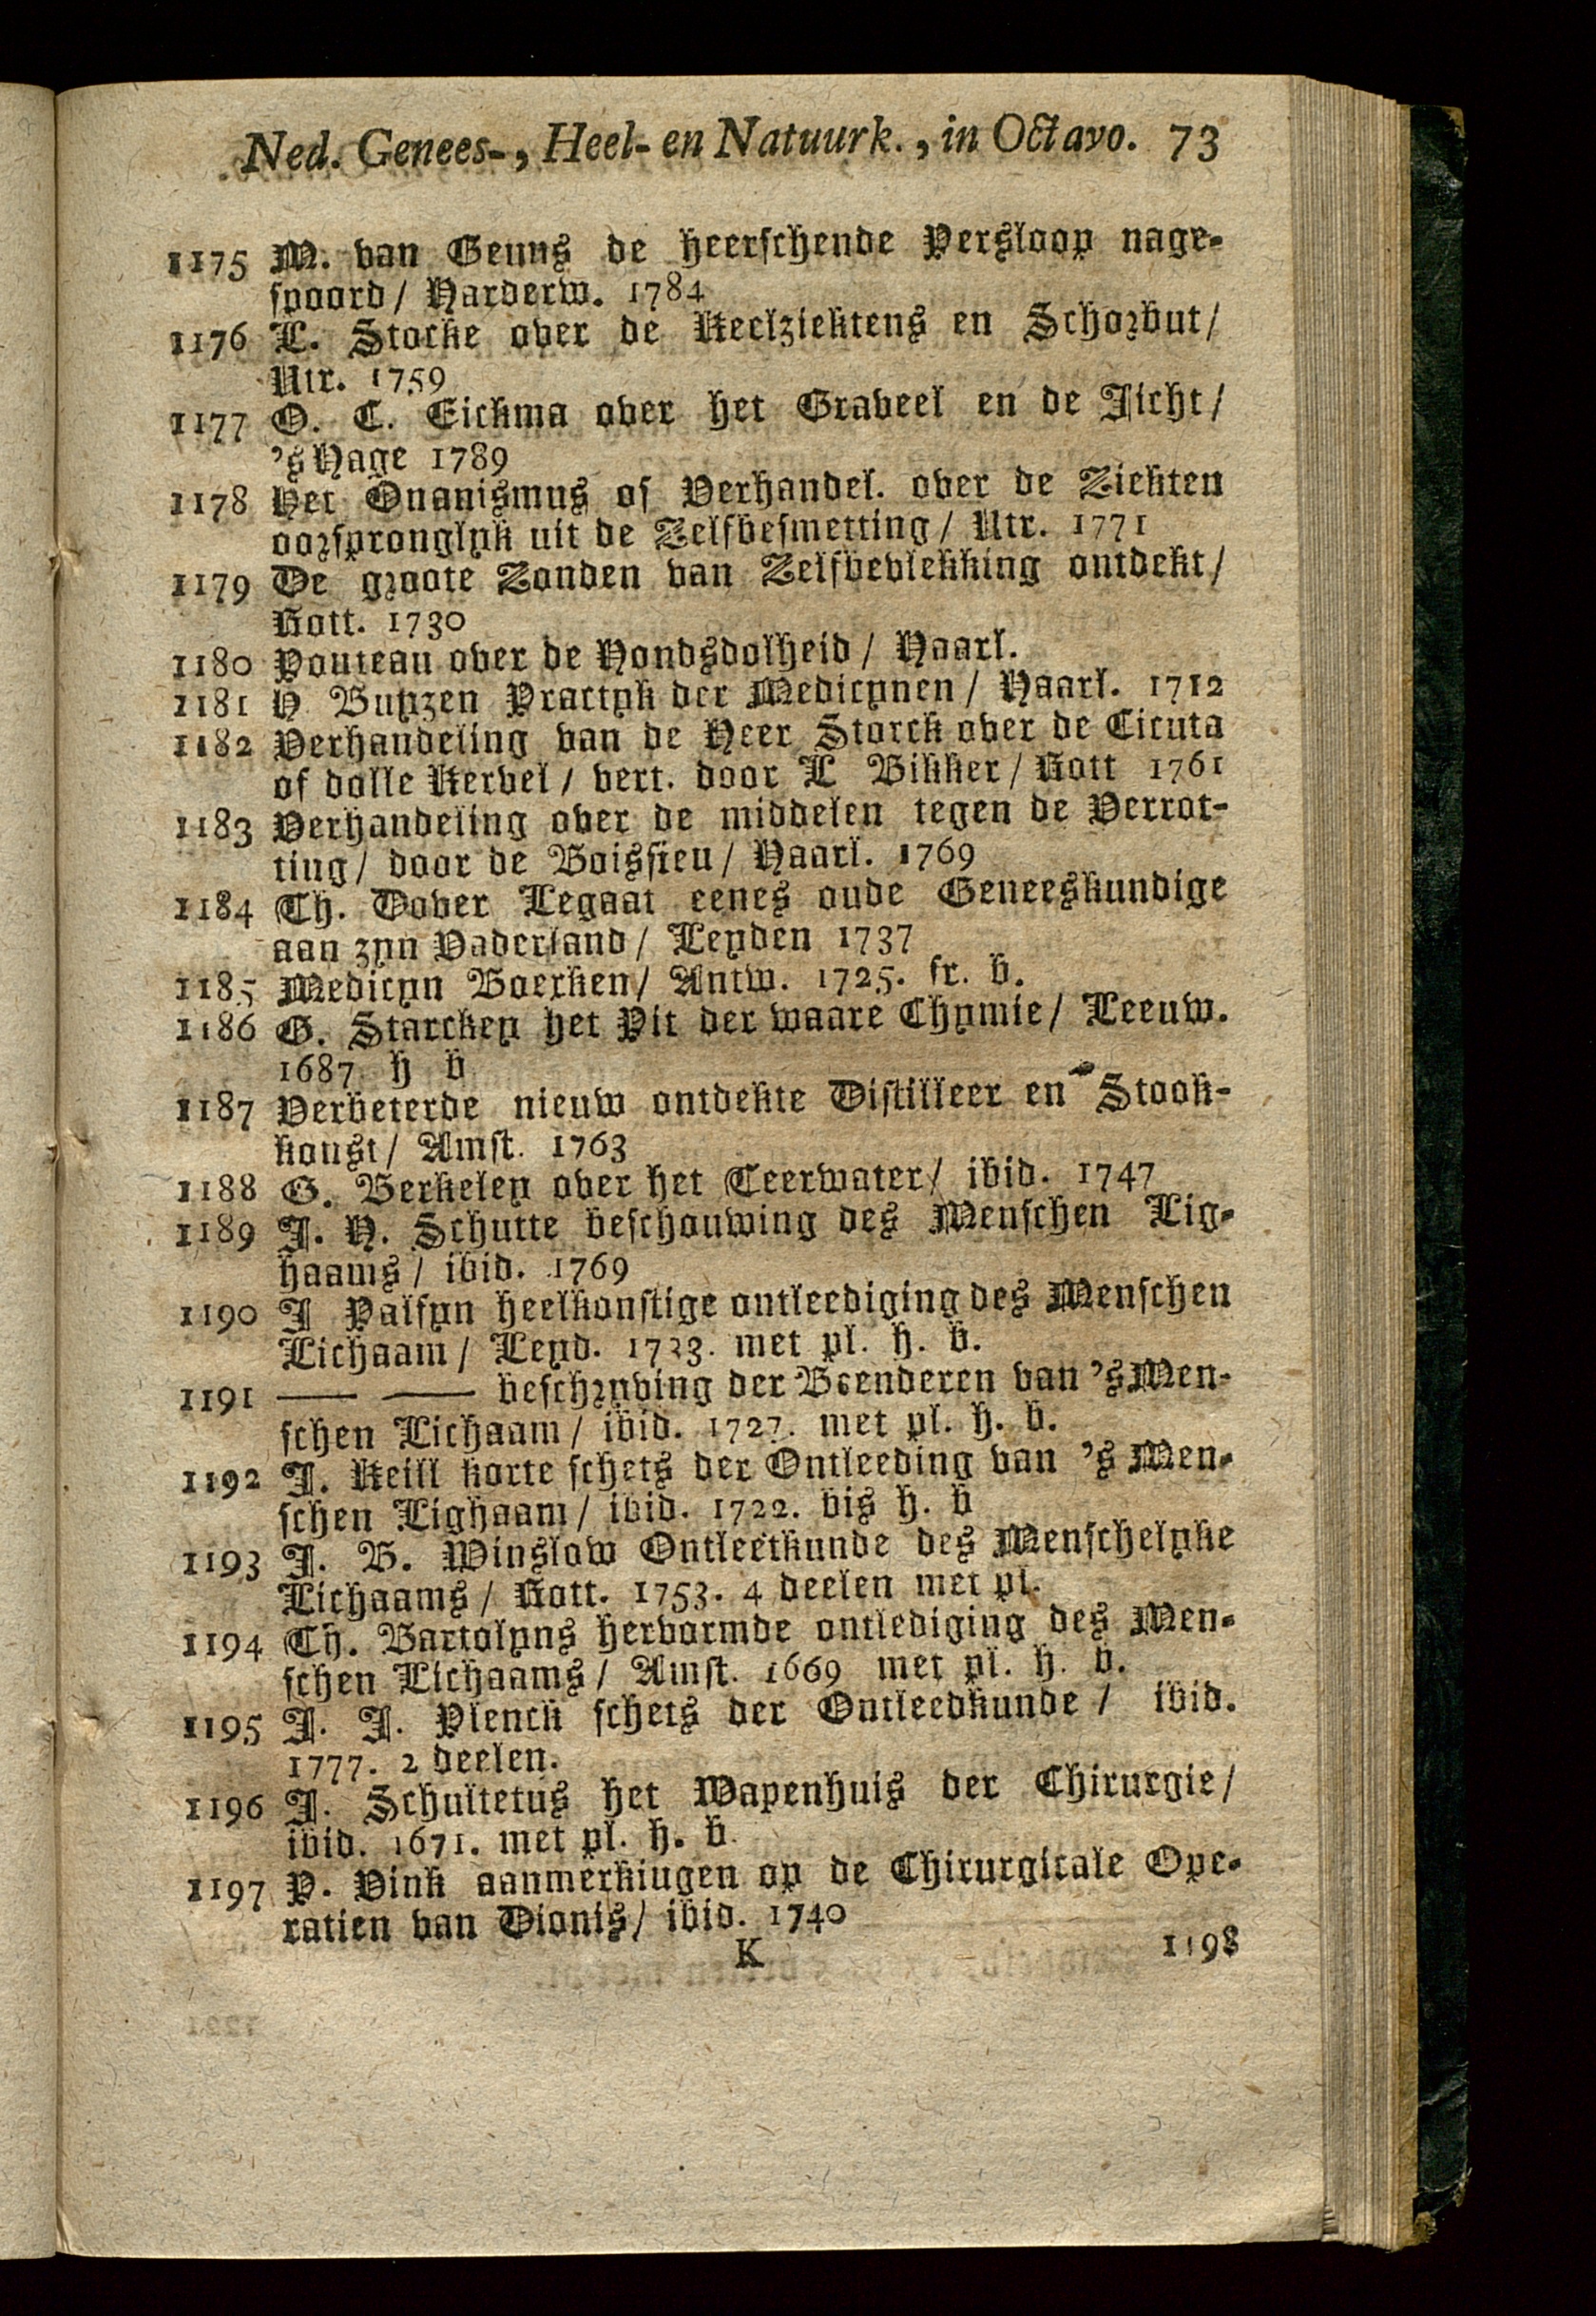 Ned. Genees-, Heel- en Natuurk., in Octavo. 73
1175 M. van Geuns de heerschende Persloop nage-
spoord / Harderw. 1784
1176 L. Stocke over de Keelziektens en Schorbut /
Utr. 1759
1177 O. C. Eickma over het Graveel en de Jicht /
's Hage 1789
1178 Het Onanismus of Verhandel. over de Ziekten
oorspronglyk uit de Zelfbesmetting / Utr. 1771
1179 De groote Zonden van Zelfbevlekking ontdekt /
Rott. 1730
1180 Pouteau over de Hondsdolheid / Haarl.
1181 H Buyzen Practyk der Medicynen / Haarl. 1712
1182 Verhandeling van de Heer Storck over de Cicuta
of dolle Kervel / vert. door L Bikker / Rott 1761
1183 Verhandeling over de middelen tegen de Verrot-
ting / door de Boissieu / Haarl. 1769
1184 Th. Dover Legaat eenes oude Geneeskundige
aan zyn Vaderland / Leyden 1737
1185 Medicyn Boerken / Antw. 1725. fr. b.
1186 G. Starckey het Pit der waare Chymie / Leeuw.
1687 h b
1187 Verbeterde nieuw ontdekte Distilleer en Stook-
konst / Amst. 1763
1188 G. Berkeley over het Teerwater / ibid. 1747
1189 J. H. Schutte beschouwing des Menschen Lig-
haams / ibid. 1769
1190 J Palfyn heelkonstige ontleediging des Menschen
Lichaam / Leyd. 1733. met pl. h. b.
1191 —— —— beschryving der Beenderen van 's Men-
schen Lichaam / ibid. 1727. met pl. h. b.
1192 J. Keill korte schets der Ontleeding van 's Men-
schen Lighaam / ibid. 1722. bis h. b
1193 J. B. Winslow Ontleetkunde des Menschelyke
Lichaams / Rott. 1753. 4 deelen met pl.
1194 Th. Bartolyns hervormde ontlediging des Men-
schen Lichaams / Amst. 1669 met pl. h. b.
1195 J. J. Plenck schets der Ontleedkunde / ibid.
1777. 2 deelen.
1196 J. Schultetus het Wapenhuis der Chirurgie /
ibid. 1671. met pl. h. b.
1197 P. Vink aanmerkiugen op de Chirurgicale Ope-
ratien van Dionis / ibid. 1740
K 1198